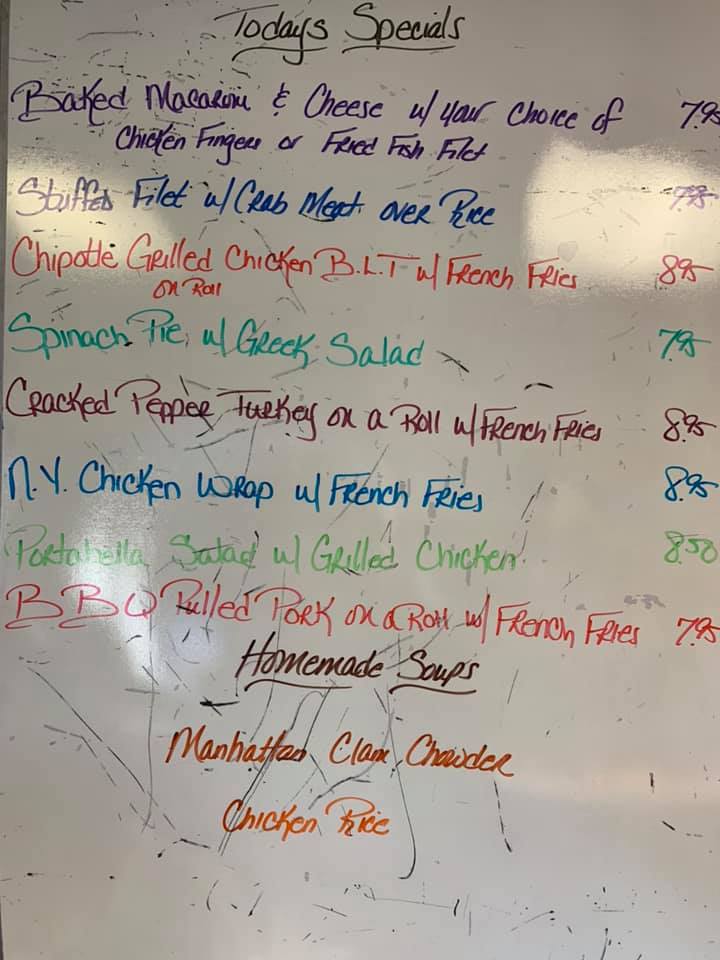 Todays Specials
Baked Macaroni & Cheese w/ your choice of 7.95
Chicken Fingers or Fried Fish Filet
Stuffed Filet w/ Crab Meat over Rice 7.95
Chipotle Grilled Chicken B.L.T w/ French Fries 8.95
on Roll
Spinach Pie w/ Greek Salad 7.95
Cracked Pepper Turkey on a Roll w/ French Fries 8.95
N.Y. Chicken Wrap w/ French Fries 8.95
Portabella Salad w/ Grilled Chicken 8.50
BBQ Pulled Pork on a Roll w/ French Fries 7.95
Homemade Soups
Manhattan Clam Chowder
Chicken Rice